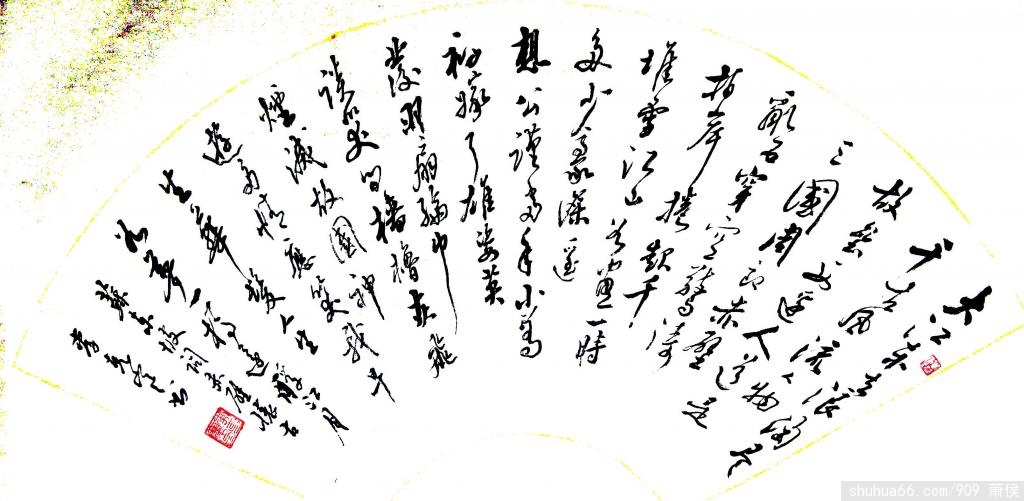 大江东去浪淘尽
千古风流人物
故垒西边人道是
三國周郎赤壁
乱石穿空惊涛
拍岸捲起千
堆雪江山如画一时
多少豪杰遥
想公瑾当年小乔
初嫁了雄姿英
發羽扇纶巾
谈笑间樯橹灰飞
煙滅故國神
遊多情應笑我
生華发人生
如梦一樽还酹江月
苏东坡词赤壁怀古
李书
shuhua66.com/909 萧侯